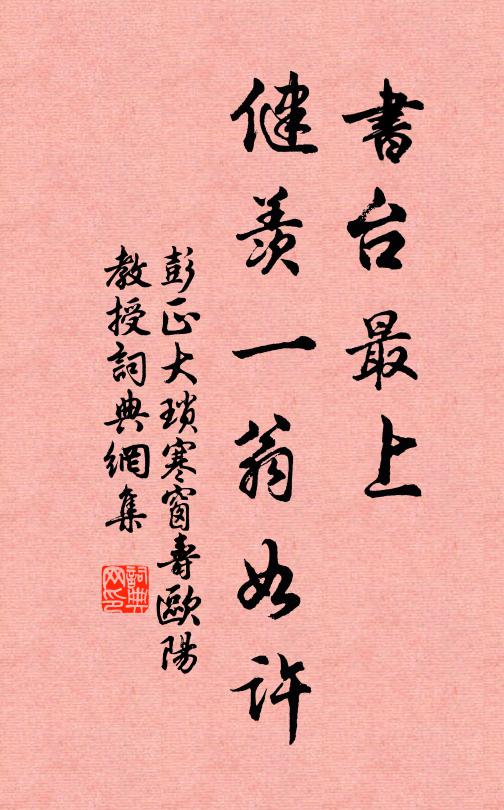 書台最上
健羨一翁如許
彭正大瑣寒窗壽歐陽
教授詞典網集
詞典
网印